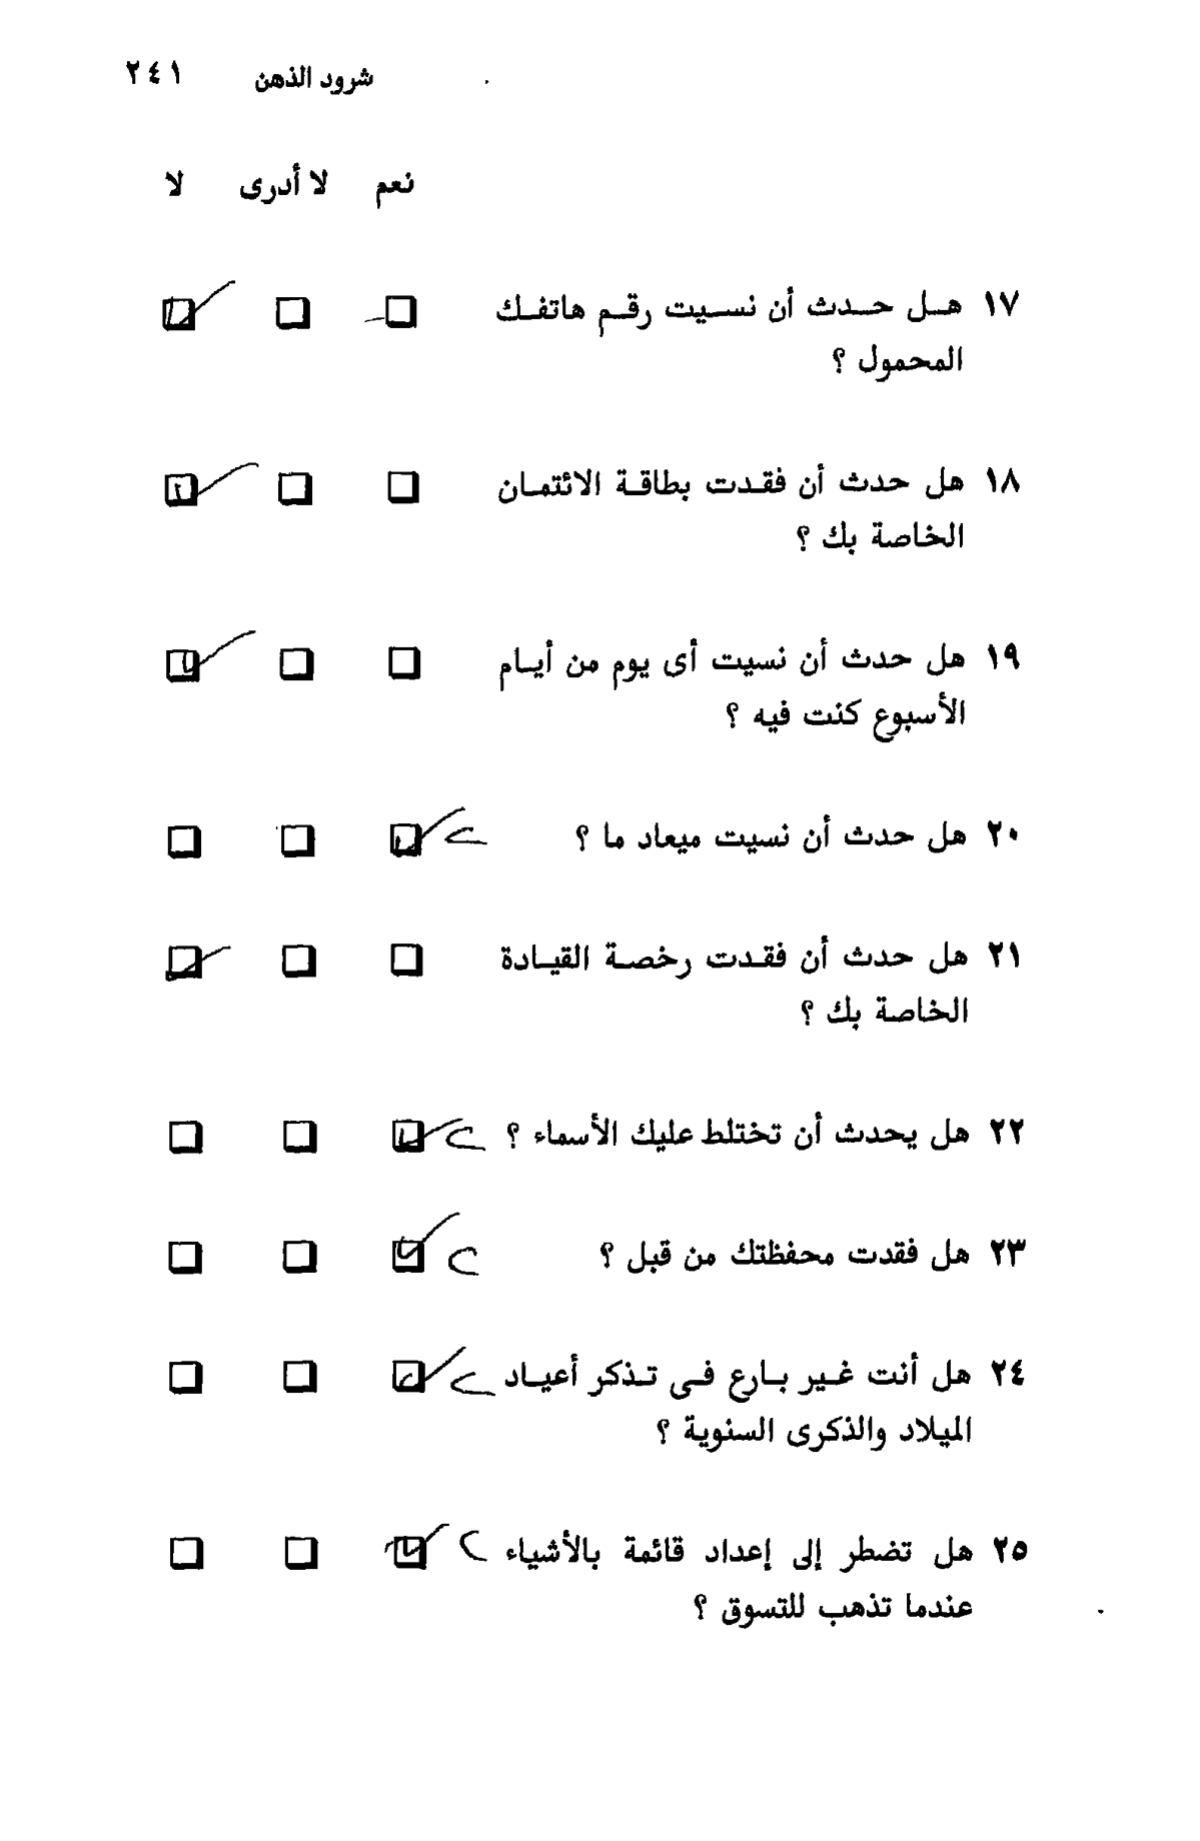 شرود الذهن ٢٤١
نعم لا أدرى لا
١٧ هـل حـدث أن نسـيت رقـم هاتفـك
المحمول ؟
١٨ هل حدث أن فقـدت بطاقـة الائتمـان
الخاصة بك ؟
١٩ هل حدث أن نسيت أى يوم من أيـام
الأسبوع كنت فيه ؟
٢٠ هل حدث أن نسيت ميعاد ما ؟
٢١ هل حدث أن فقـدت رخصـة القيـادة
الخاصة بك ؟
٢٢ هل يحدث أن تختلط عليك الأسماء ؟
٢٣ هل فقدت محفظتك من قبل ؟
٢٤ هل أنت غـير بـارع فـى تـذكر أعيـاد
الميلاد والذكرى السنوية ؟
٢٥ هل تضطر إلى إعداد قائمة بالأشياء
عندما تذهب للتسوق ؟